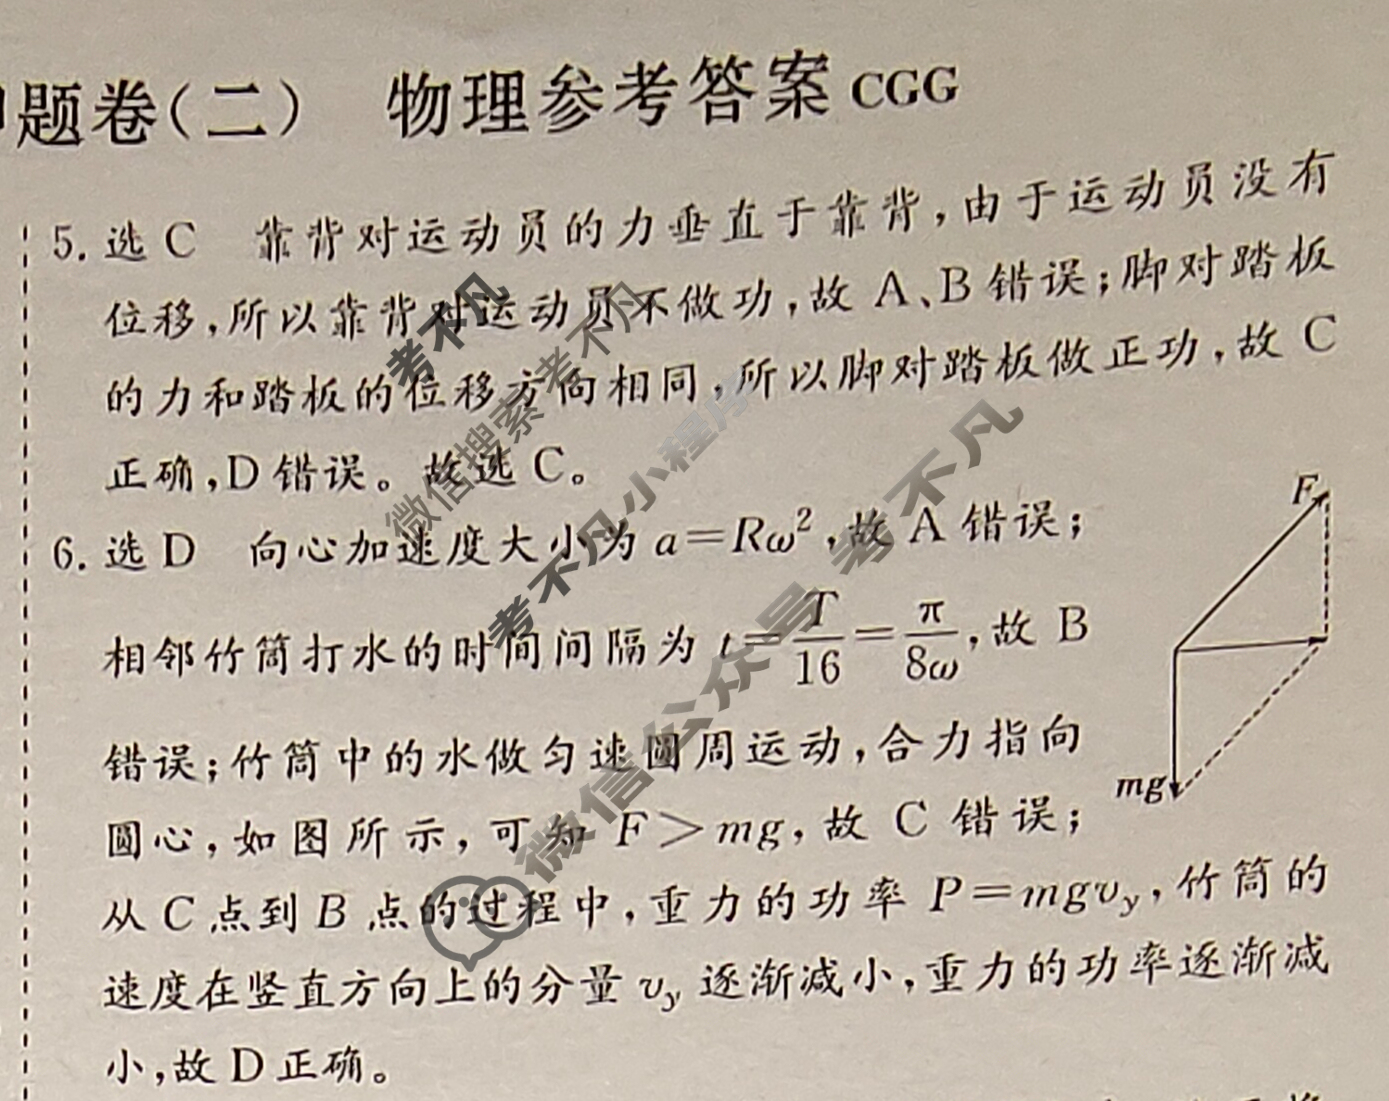 题卷(二) 物理参考答案 CGG
5. 选 C 靠背对运动员的力垂直于靠背,由于运动员没有
位移,所以靠背对运动员不做功,故 A、B 错误;脚对踏板
的力和踏板的位移方向相同,所以脚对踏板做正功,故 C
正确,D 错误。故选 C。
6. 选 D 向心加速度大小为 a=Rω²,故 A 错误;
相邻竹筒打水的时间间隔为 t=T/16=π/8ω,故 B
错误;竹筒中的水做匀速圆周运动,合力指向
圆心,如图所示,可知 F>mg,故 C 错误;
从 C 点到 B 点的过程中,重力的功率 P=mgv_y,竹筒的
速度在竖直方向上的分量 v_y 逐渐减小,重力的功率逐渐减
小,故 D 正确。
F
mg
考不凡
微信搜索 考不凡
考不凡小程序
微信公众号 考不凡